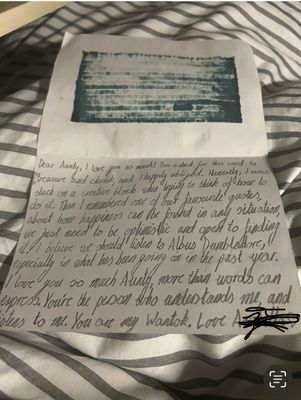 Dear Aunty, I love you so much! You asked for this card to
treasure and cherish, and I happily obliged. Honestly, I was
stuck on a creative block when trying to think of how to
do it. Then I remembered one of our favourite quotes,
about how happiness can be found in any situation,
we just need to be optimistic and open to finding
it. I believe we should listen to Albus Dumbledore,
especially in what has been going on in the past year.
I love you so much Aunty, more than words can
express. You're the person who understands me, and
listens to me. You are my Wantok. Love